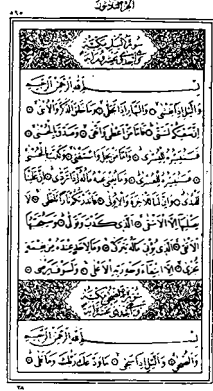 الجزء الثلاثون
سورة الليل مكية
بسم الله الرحمن الرحيم
وَٱلَّيْلِ إِذَا يَغْشَىٰ ۝ وَٱلنَّهَارِ إِذَا تَجَلَّىٰ ۝ وَمَا خَلَقَ ٱلذَّكَرَ وَٱلْأُنثَىٰ ۝
إِنَّ سَعْيَكُمْ لَشَتَّىٰ ۝ فَأَمَّا مَنْ أَعْطَىٰ وَٱتَّقَىٰ ۝ وَصَدَّقَ بِٱلْحُسْنَىٰ ۝
فَسَنُيَسِّرُهُ لِلْيُسْرَىٰ ۝ وَأَمَّا مَنۢ بَخِلَ وَٱسْتَغْنَىٰ ۝ وَكَذَّبَ بِٱلْحُسْنَىٰ
۝ فَسَنُيَسِّرُهُ لِلْعُسْرَىٰ ۝ وَمَا يُغْنِي عَنْهُ مَالُهُ إِذَا تَرَدَّىٰ ۝ إِنَّ عَلَيْنَا
لَلْهُدَىٰ ۝ وَإِنَّ لَنَا لَلْآخِرَةَ وَٱلْأُولَىٰ ۝ فَأَنذَرْتُكُمْ نَارًا تَلَظَّىٰ ۝ لَا
يَصْلَىٰهَا إِلَّا ٱلْأَشْقَى ۝ ٱلَّذِي كَذَّبَ وَتَوَلَّىٰ ۝ وَسَيُجَنَّبُهَا
ٱلْأَتْقَى ۝ ٱلَّذِي يُؤْتِي مَالَهُ يَتَزَكَّىٰ ۝ وَمَا لِأَحَدٍ عِندَهُ مِن نِّعْمَةٍ
تُجْزَىٰ ۝ إِلَّا ٱبْتِغَآءَ وَجْهِ رَبِّهِ ٱلْأَعْلَىٰ ۝ وَلَسَوْفَ يَرْضَىٰ ۝
سورة الضحى مكية
بسم الله الرحمن الرحيم
وَٱلضُّحَىٰ ۝ وَٱلَّيْلِ إِذَا سَجَىٰ ۝ مَا وَدَّعَكَ رَبُّكَ وَمَا قَلَىٰ ۝
٣٨